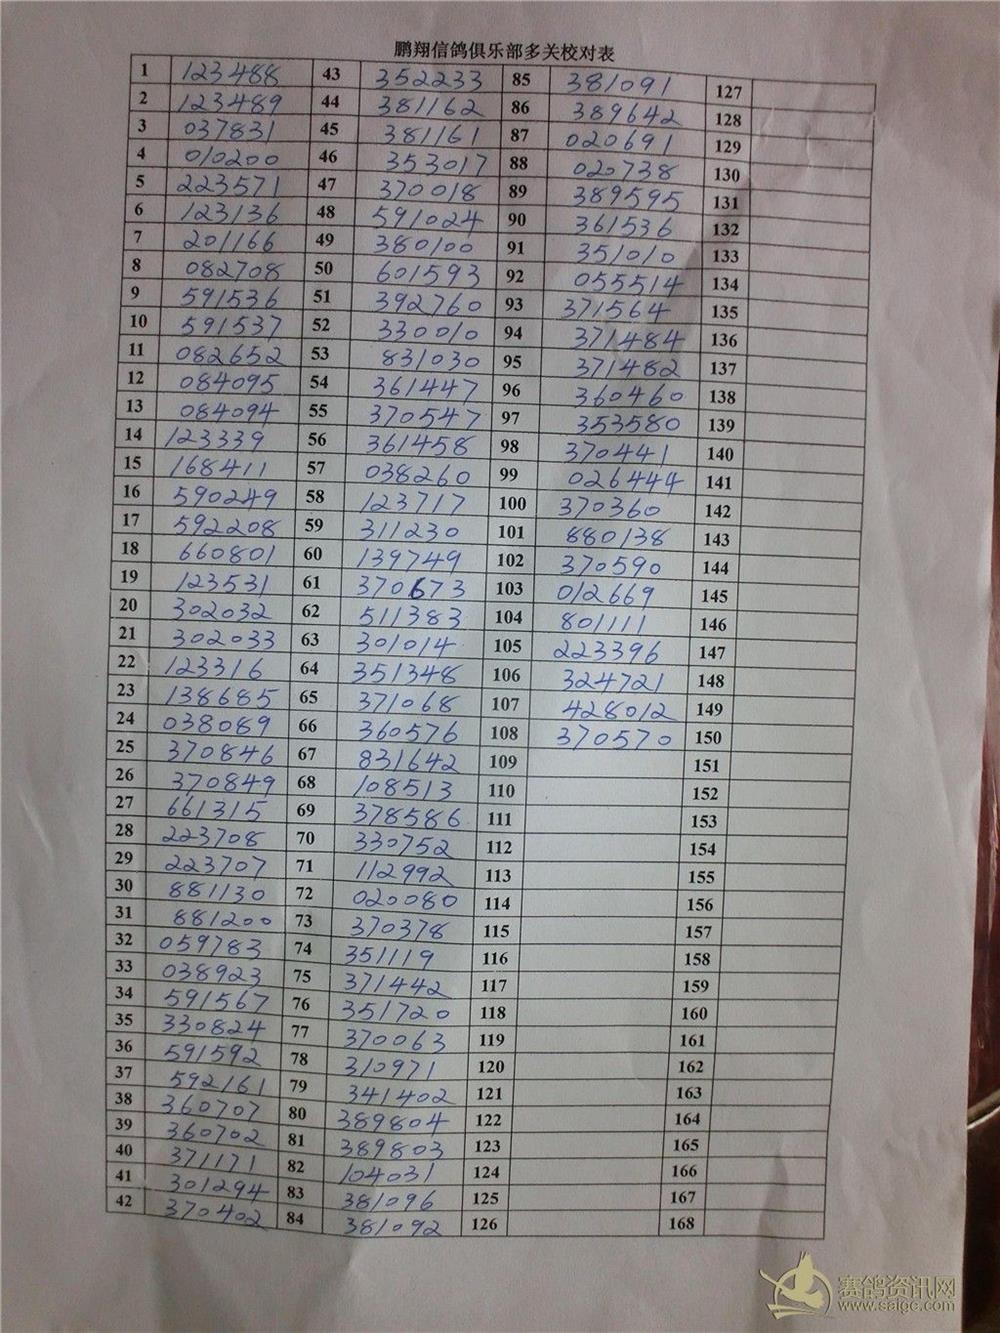 鹏翔信鸽俱乐部多关校对表
1 123488 43 352233 85 381091 127
2 123489 44 381162 86 389642 128
3 037831 45 381161 87 020691 129
4 010200 46 353017 88 020738 130
5 223571 47 370018 89 389595 131
6 123136 48 591024 90 361536 132
7 201166 49 380100 91 351010 133
8 082708 50 601593 92 055514 134
9 591536 51 392760 93 371564 135
10 591537 52 330010 94 371484 136
11 082652 53 831030 95 371482 137
12 084095 54 361447 96 360460 138
13 084094 55 370547 97 353580 139
14 123339 56 361458 98 370441 140
15 168411 57 038260 99 026444 141
16 590249 58 123717 100 370360 142
17 592208 59 311230 101 880138 143
18 660801 60 139749 102 370590 144
19 123531 61 370673 103 012669 145
20 302032 62 511383 104 801111 146
21 302033 63 301014 105 223396 147
22 123316 64 351348 106 324721 148
23 138685 65 371068 107 428012 149
24 038089 66 360576 108 370570 150
25 370846 67 831642 109 151
26 370849 68 108513 110 152
27 661315 69 378586 111 153
28 223708 70 330752 112 154
29 223707 71 112992 113 155
30 881130 72 020080 114 156
31 881200 73 370378 115 157
32 059783 74 351119 116 158
33 038923 75 371442 117 159
34 591567 76 351720 118 160
35 330824 77 370063 119 161
36 591592 78 310971 120 162
37 592161 79 341402 121 163
38 360707 80 389804 122 164
39 360702 81 389803 123 165
40 371171 82 104031 124 166
41 301294 83 381096 125 167
42 370402 84 381092 126 168
赛鸽资讯网
www.saigc.com